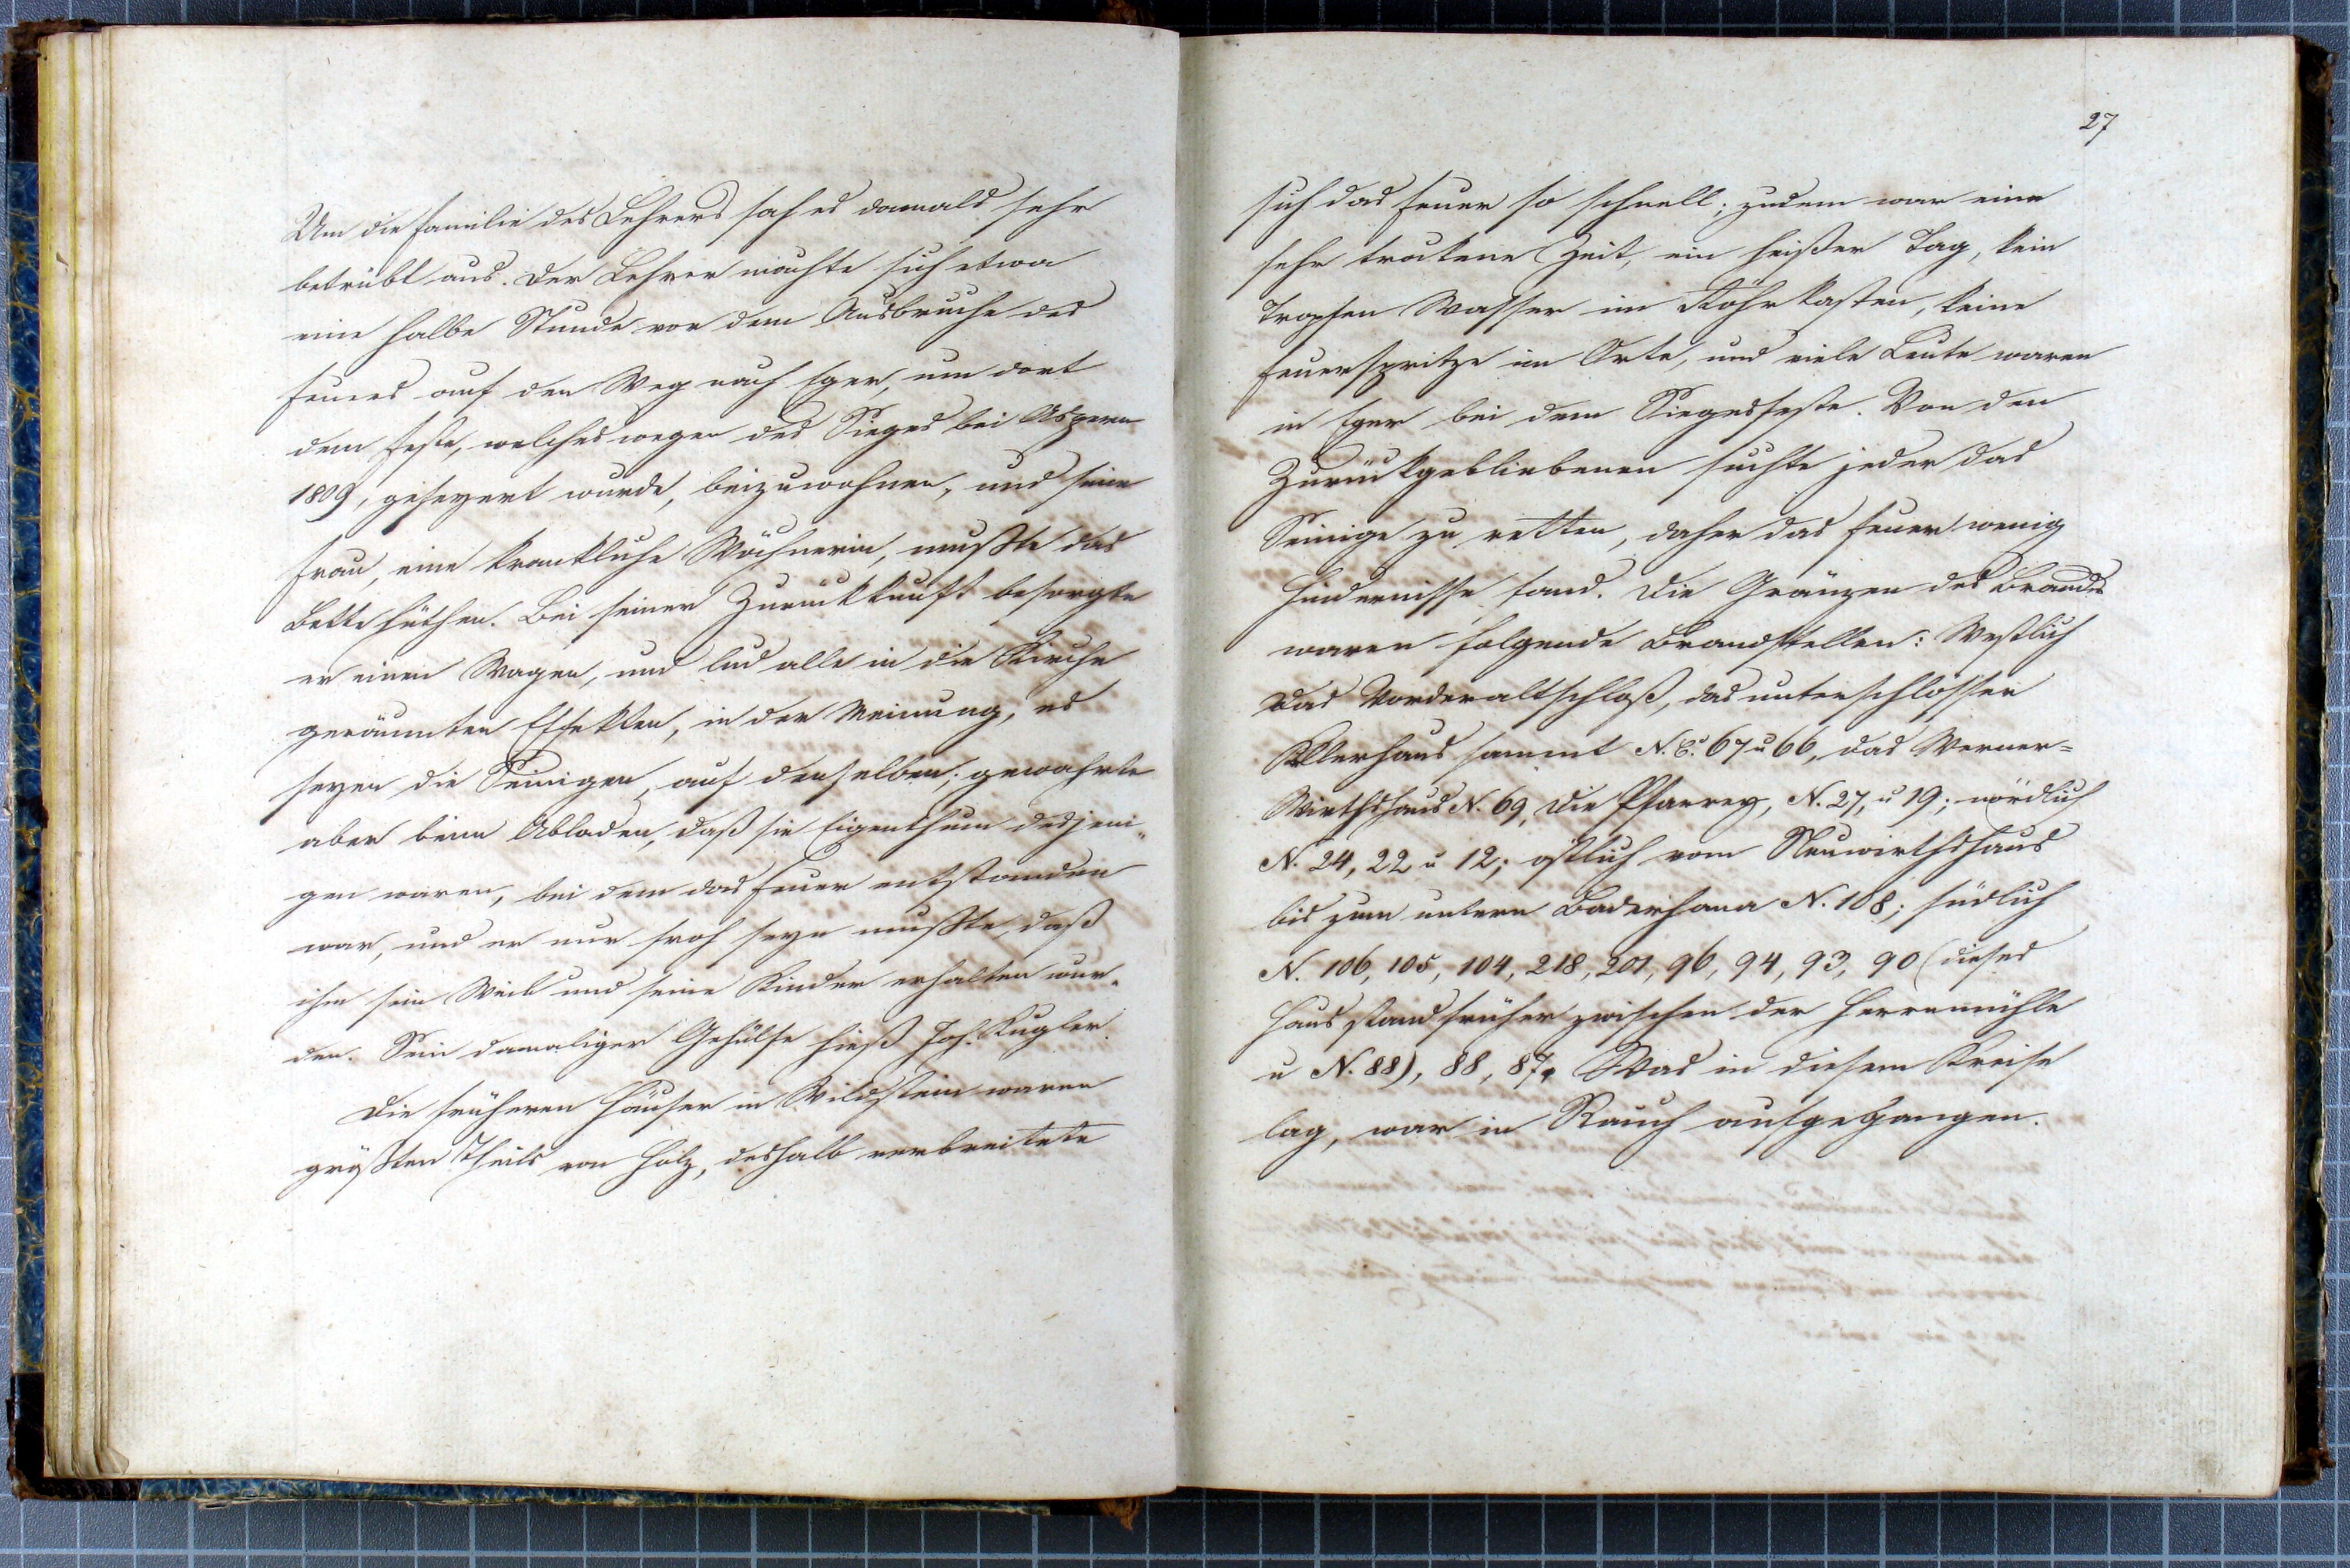 Um die Familie des Lehrers sah es damals sehr
betrübt aus. Der Lehrer machte sich etwa
eine halbe Stunde vor dem Ausbruche des
Feuers auf den Weg nach Eger, um dort
dem Feste, welches wegen des Sieges bei Aspern
1809, gefeyert wurde, beizuwohnen, und seine
Frau, eine kränkliche Wöchnerin, mußte das
Bette hüthen. Bei seiner Zurückkunft besorgte
er einen Wagen, und lud alle in die Kirche
geräumten Effekten, in der Meinung, es
seyen die Seinigen, auf denselben; gewahrte
aber beim Abladen, daß sie Eigenthum desjeni-
gen waren, bei dem das Feuer entstanden
war, und er nur froh seyn mußte, daß
ihm sein Weib und seine Kinder erhalten wur-
den. Sein damaliger Gehülfe hieß Joh. Kugler.
Die früheren Häuser in Wildstein waren
größten Theils von Holz, deshalb verbreitete
27
sich das Feuer so schnell; zudem war eine
sehr trockene Zeit, ein heißer Tag, kein
Tropfen Wasser im Röhrkasten, keine
Feuerspritze im Orte, und viele Leute waren
in Eger bei dem Siegesfeste. Von den
Zurückgebliebenen suchte jeder das
Seinige zu retten, daher das Feuer wenig
Hindernisse fand. Die Gränzen des Brandes
waren folgende Brandstellen: Westlich
das Vorderaltschloß, das unterschlösser
sammt N. C. 67 u 66, das Werner=
Wirthshaus N. 69, die Pfarrey, N. 27, u 19; nördlich
N. 24, 22 u 12; östlich vom Neuwirthshaus
bis zum untern N. 108; südlich
N. 106, 105, 104, 218, 201, 96, 94, 93, 90 (dieses
Haus stand früher zwischen der Herrnmühle
u N. 88), 88, 87. Was in diesem Kreise
lag, war in Rauch aufgegangen.